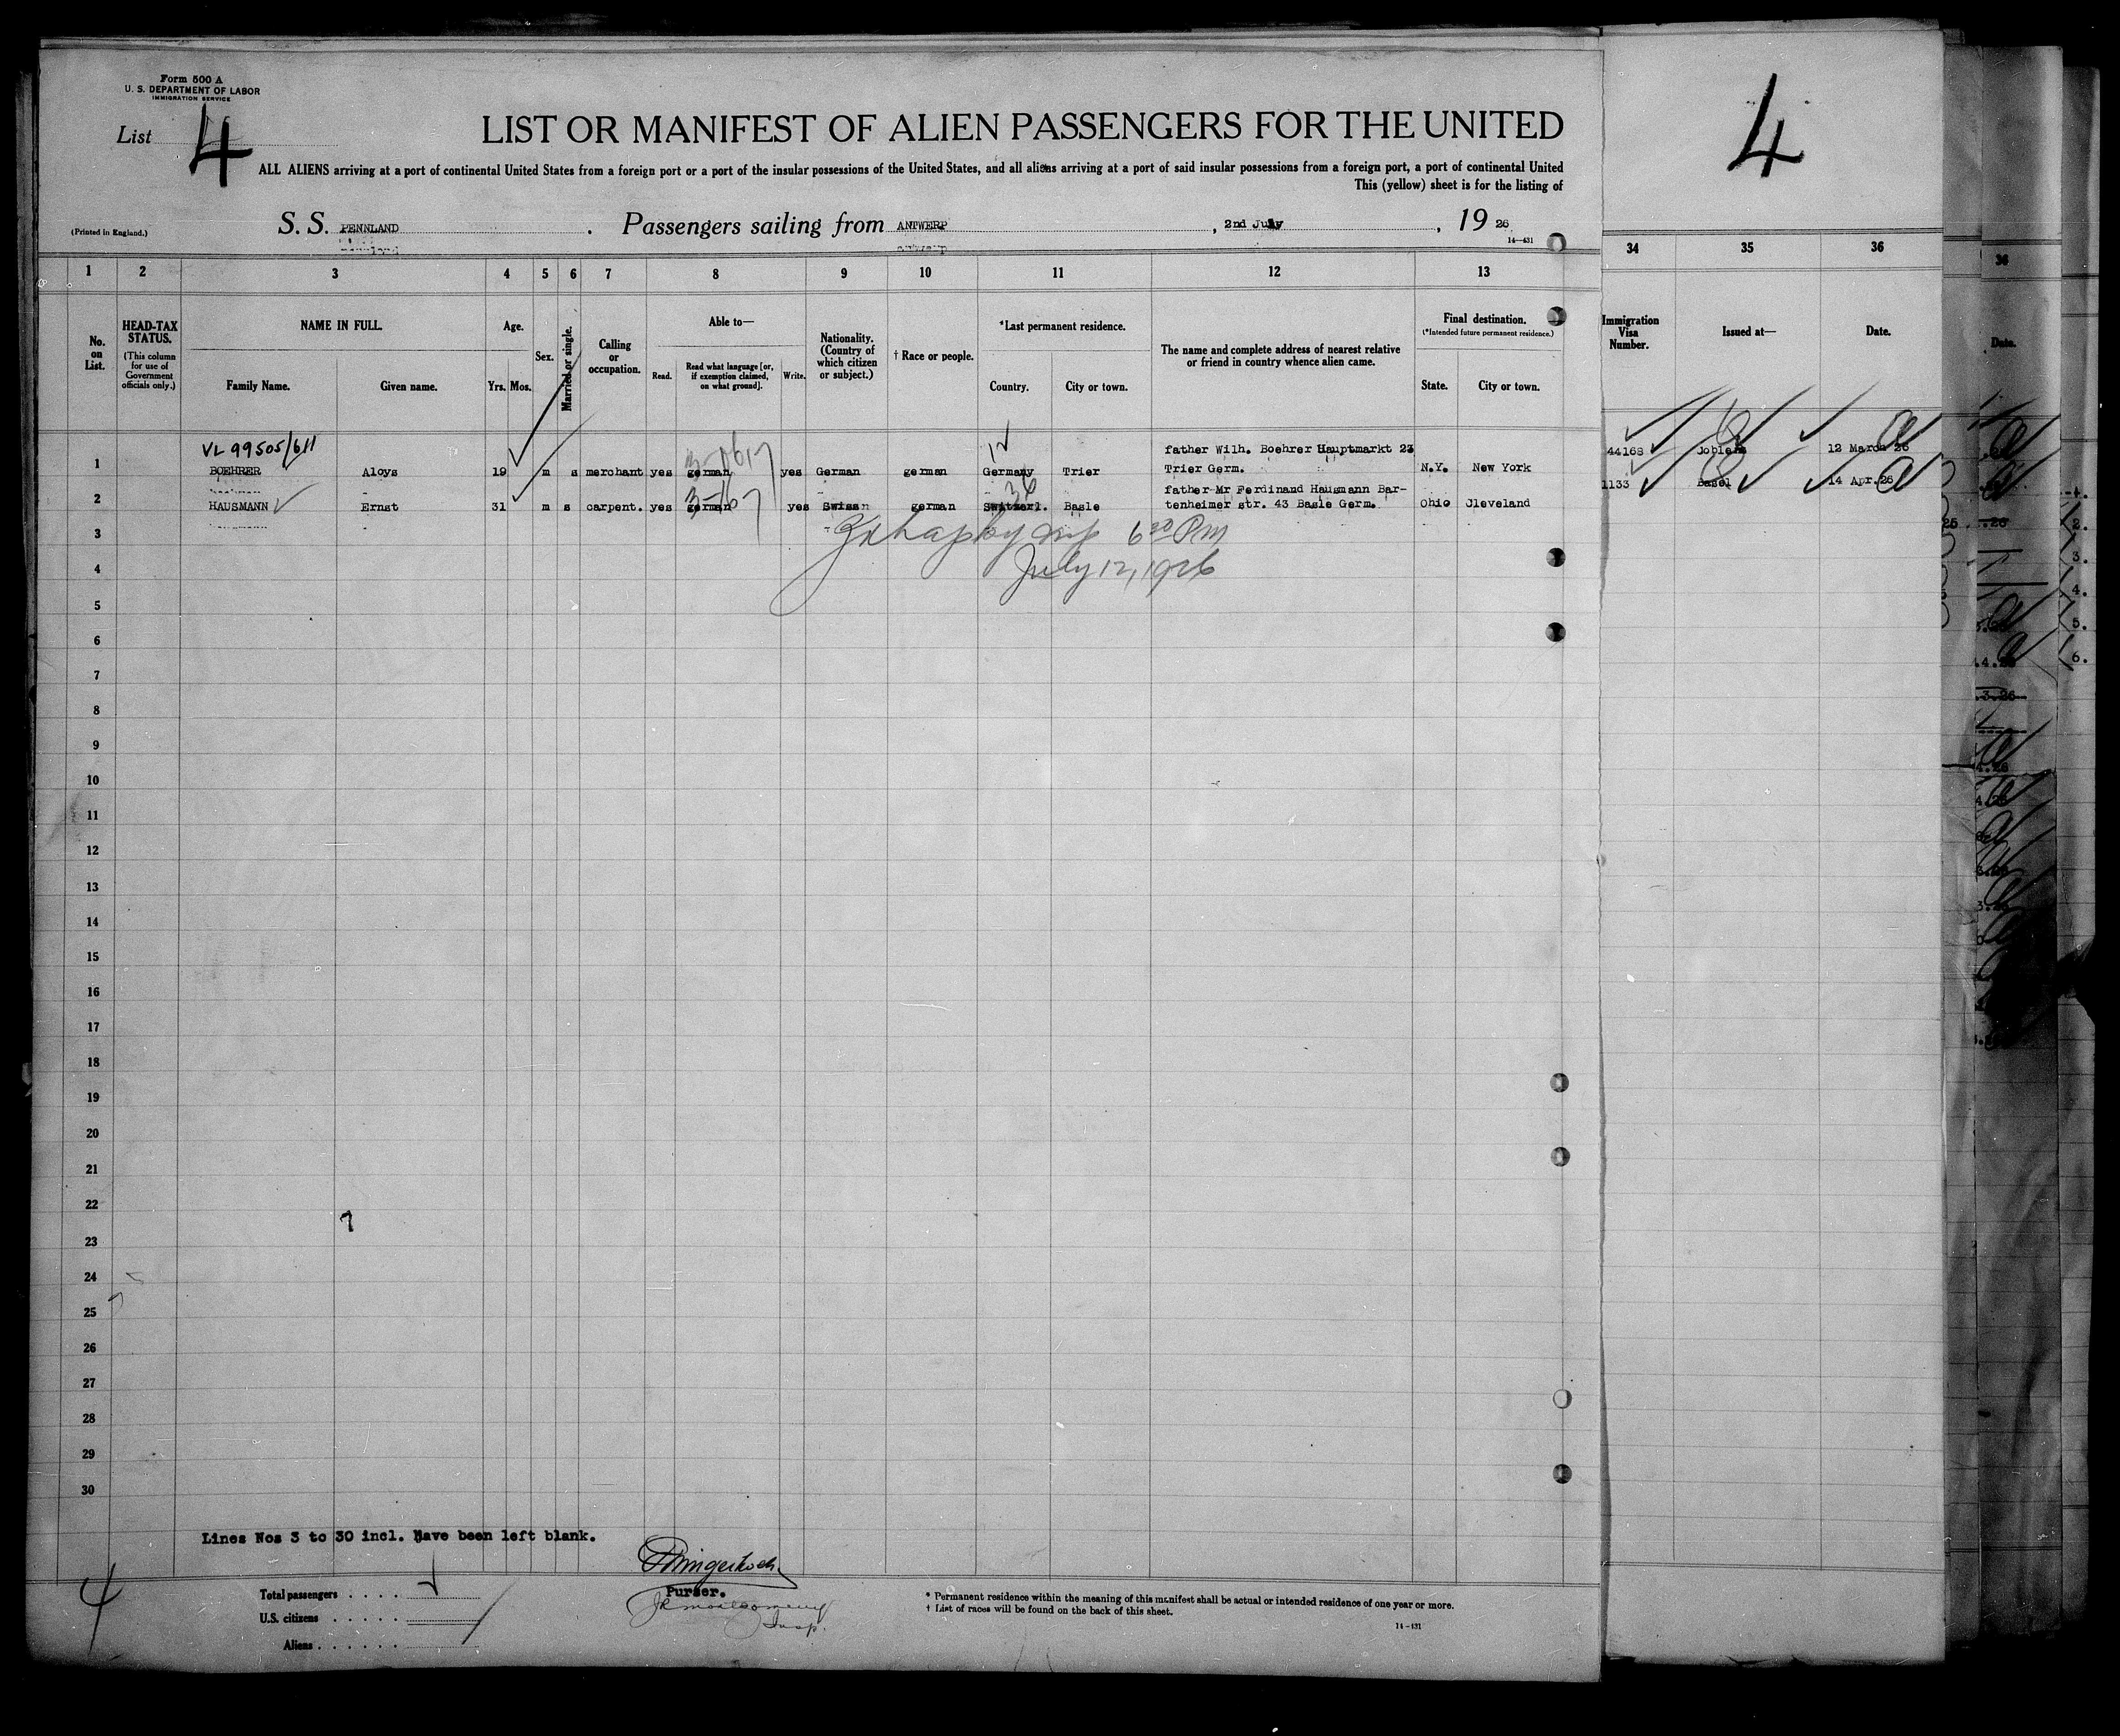 Form 500 A
U. S. DEPARTMENT OF LABOR
IMMIGRATION SERVICE
List 4
LIST OR MANIFEST OF ALIEN PASSENGERS FOR THE UNITED
ALL ALIENS arriving at a port of continental United States from a foreign port or a port of the insular possessions of the United States, and all aliens arriving at a port of said insular possessions from a foreign port, a port of continental United
This (yellow) sheet is for the listing of
(Printed in England.)
S. S. PENNLAND . Passengers sailing from ANTWERP , 2nd July , 19 26
14—431
4
1 2 3 4 5 6 7 8 9 10 11 12 13 34 35 36
No. on List.
HEAD-TAX STATUS.
(This column for use of Government officials only.)
NAME IN FULL.
Family Name. Given name.
Age.
Yrs. Mos.
Sex.
Married or single.
Calling or occupation.
Able to—
Read. Read what language [or, if exemption claimed, on what ground]. Write.
Nationality. (Country of which citizen or subject.)
† Race or people.
*Last permanent residence.
Country. City or town.
The name and complete address of nearest relative or friend in country whence alien came.
Final destination.
(*Intended future permanent residence.)
State. City or town.
Immigration Visa Number.
Issued at—
Date.
36
Date.
VL 99505/611
father Wilh. Boehrer Hauptmarkt 23
1 BOEHRER Aloys 19 m s merchant yes german yes German german Germany Trier Trier Germ. N.Y. New York 44168 12 March 26
father Mr Ferdinand Hausmann Bar-
2 HAUSMANN Ernst 31 m s carpent. yes german yes Swiss german Switzerl. Basle tenheimer str. 43 Basle Germ. Ohio Cleveland 1133 Basel 14 Apr.26
3
6 30 Pm
4
July 12, 1926
5
6
7
8
9
10
11
12
13
14
15
16
17
18
19
20
21
22
23
24
25
26
27
28
29
30
Lines Nos 3 to 30 incl. Have been left blank.
4
Total passengers
U.S. citizens
Aliens
Purser.
JR Montgomery
Insp.
* Permanent residence within the meaning of this manifest shall be actual or intended residence of one year or more.
† List of races will be found on the back of this sheet.
14—431